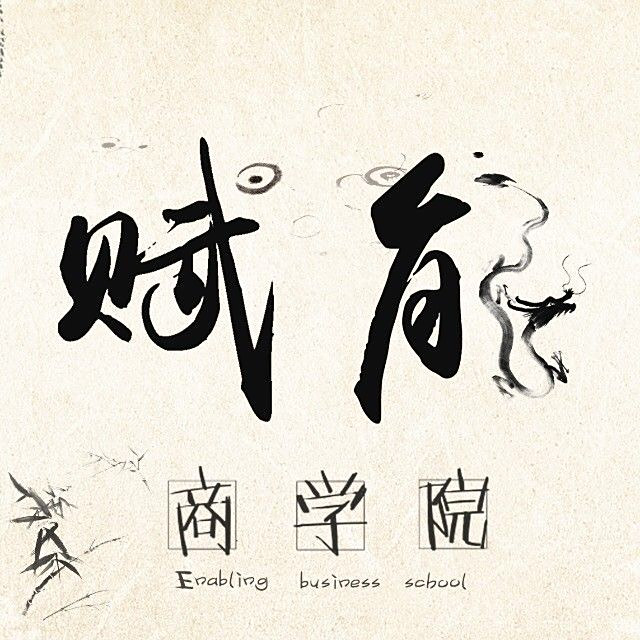 赋能
商学院
Enabling business school